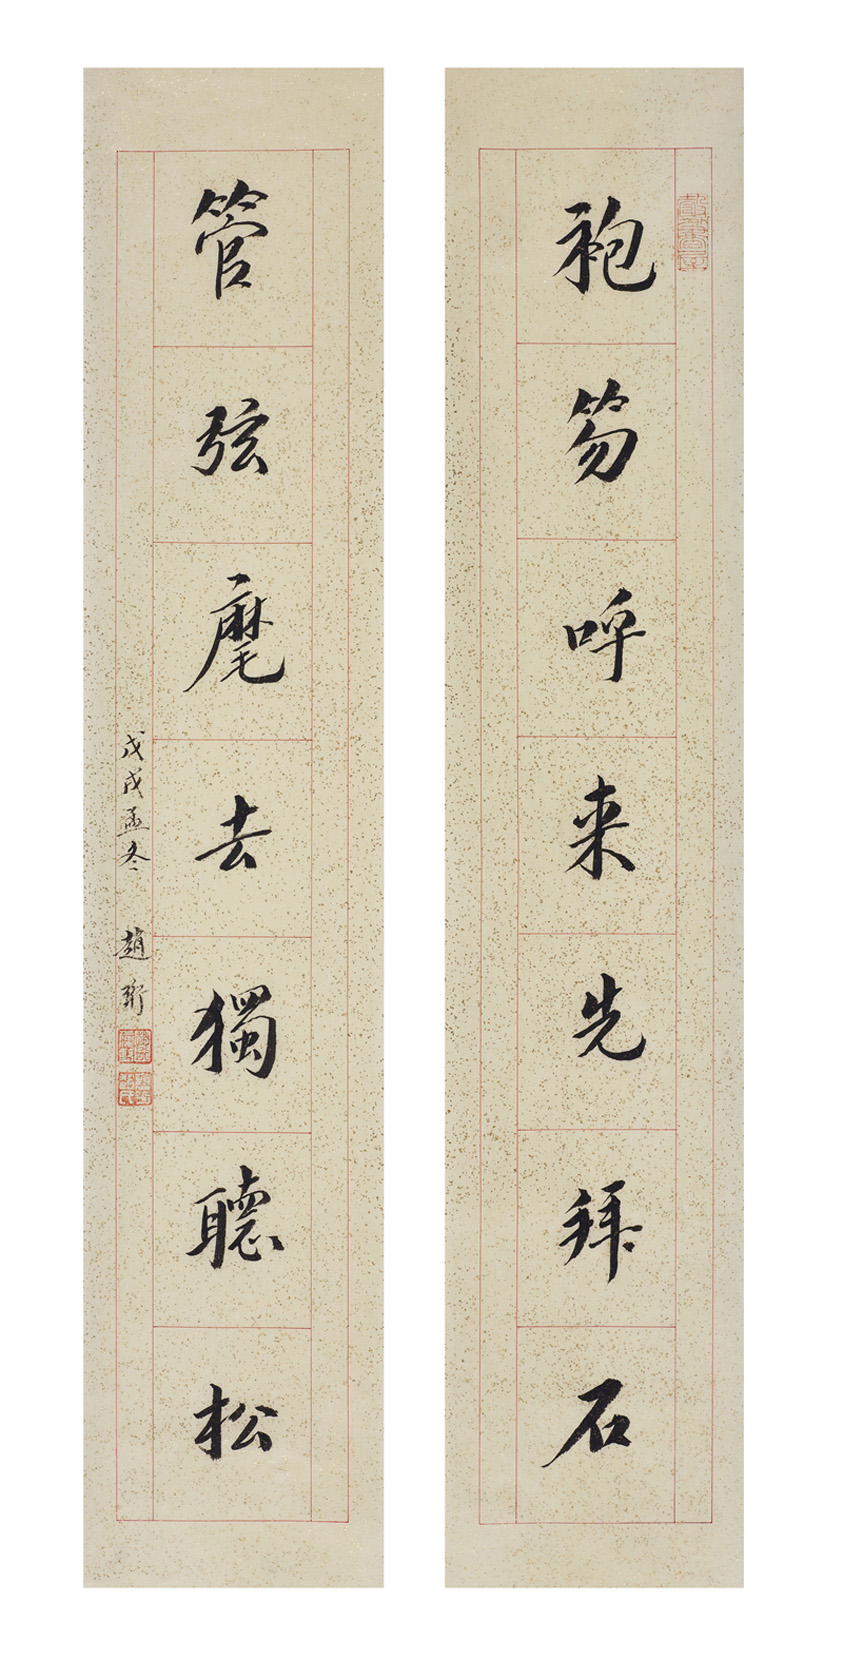 袍笏呼来先拜石
管弦麾去獨聽松
戊戌孟冬 趙珩